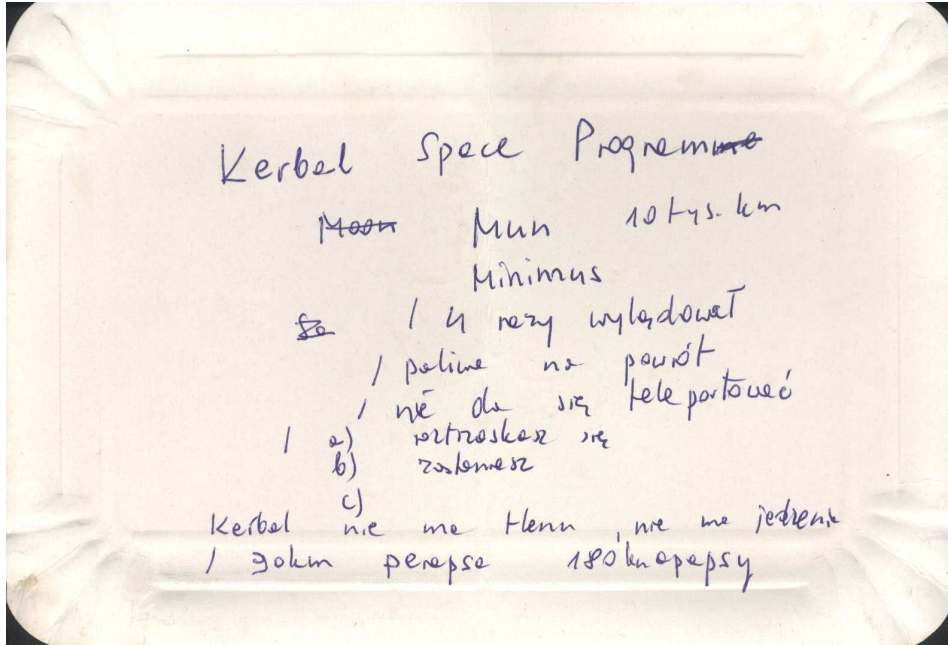 Kerbal Space Programme
Moon Mun 10 tys. km
Minimus
/ 4 razy wylądował
/ paliwa na powrót
/ nie da się teleportować
/ a) roztrzaskasz się
b) zostaniesz
c)
Kerbal nie ma tlenu, nie ma jedzenia
/ 90km perapsa 180km apapsy